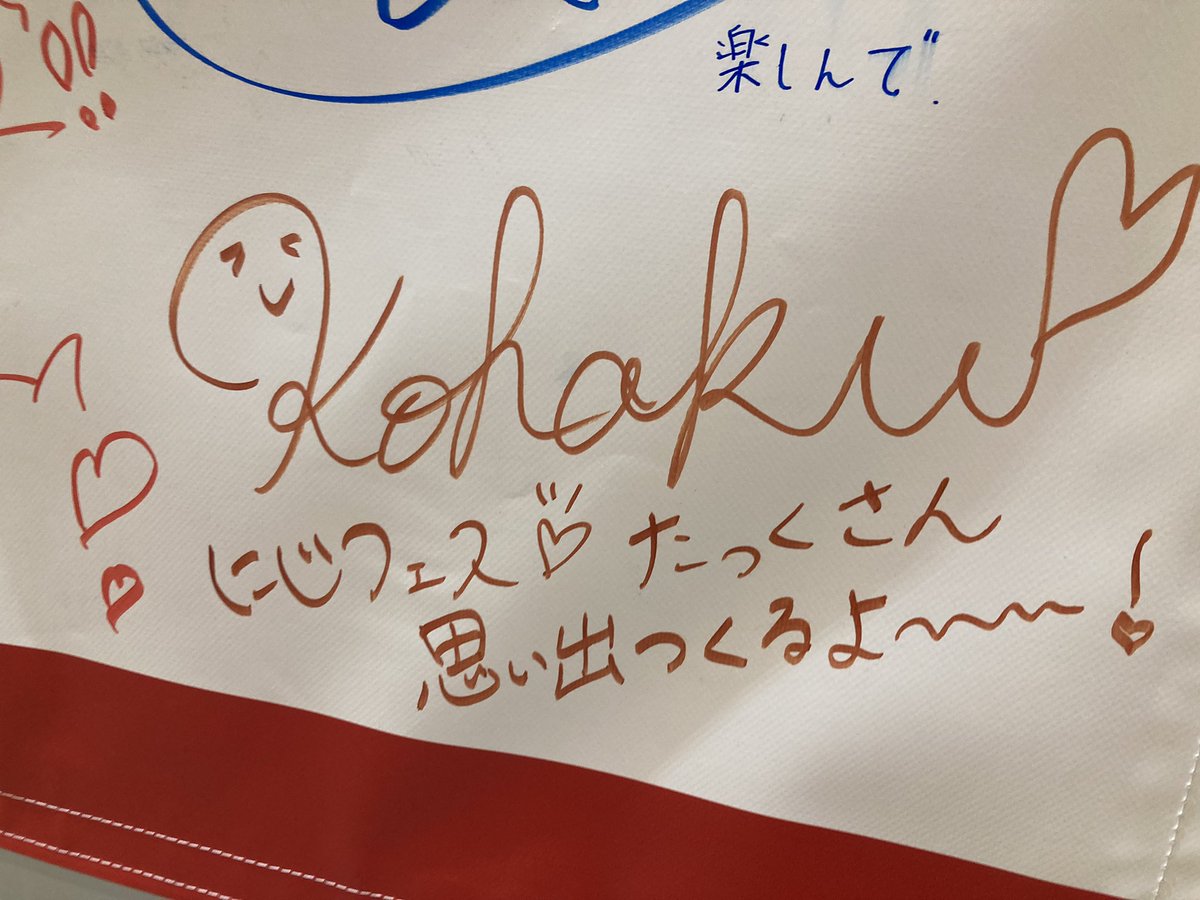 楽しんで!!
Kohaku♡
にじフェス♡たっくさん
思い出つくるよ〜〜〜!